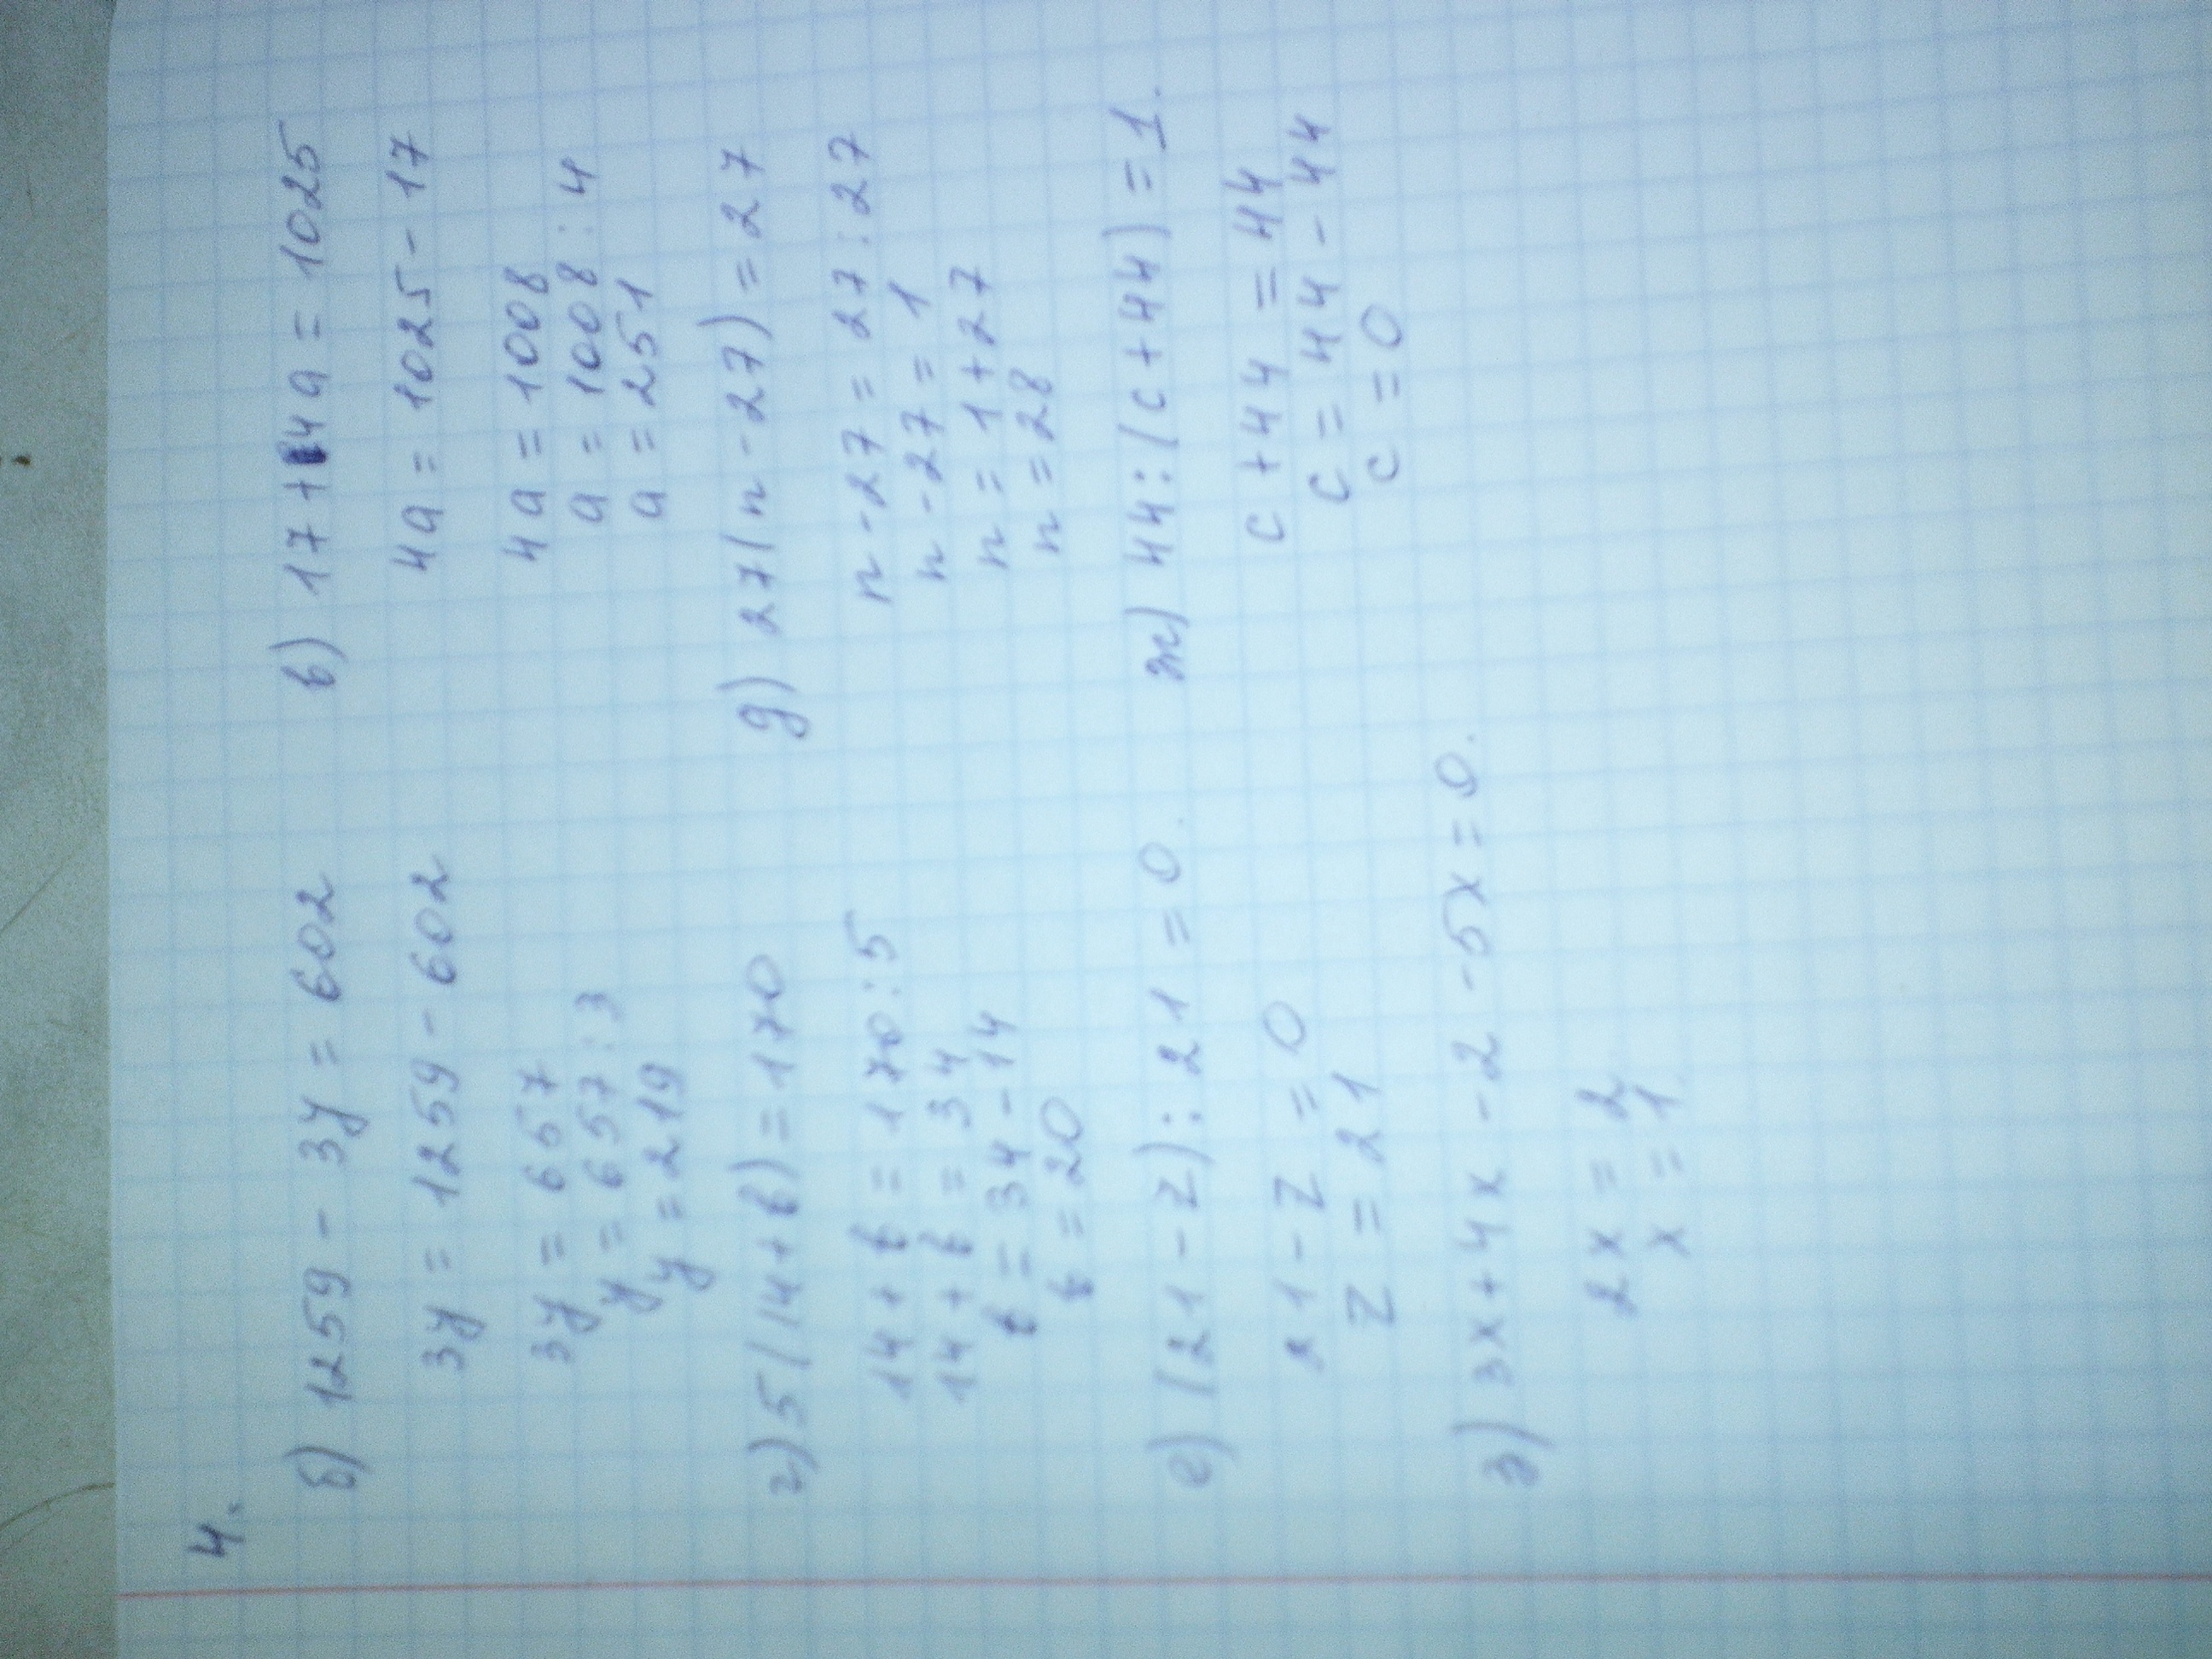 4.
б) 1259 - 3y = 602
3y = 1259 - 602
3y = 657
y = 657 : 3
y = 219
в) 17 + 4a = 1025
4a = 1025 - 17
4a = 1008
a = 1008 : 4
a = 251
г) 5(14 + b) = 170
14 + b = 170 : 5
14 + b = 34
b = 34 - 14
b = 20
д) 27(n - 27) = 27
n - 27 = 27 : 27
n - 27 = 1
n = 1 + 27
n = 28
е) (21 - z) : 21 = 0.
21 - z = 0
z = 21
ж) 44 : (c + 44) = 1.
c + 44 = 44
c = 44 - 44
c = 0
з) 3x + 4x - 2 - 5x = 0.
2x = 2
x = 1